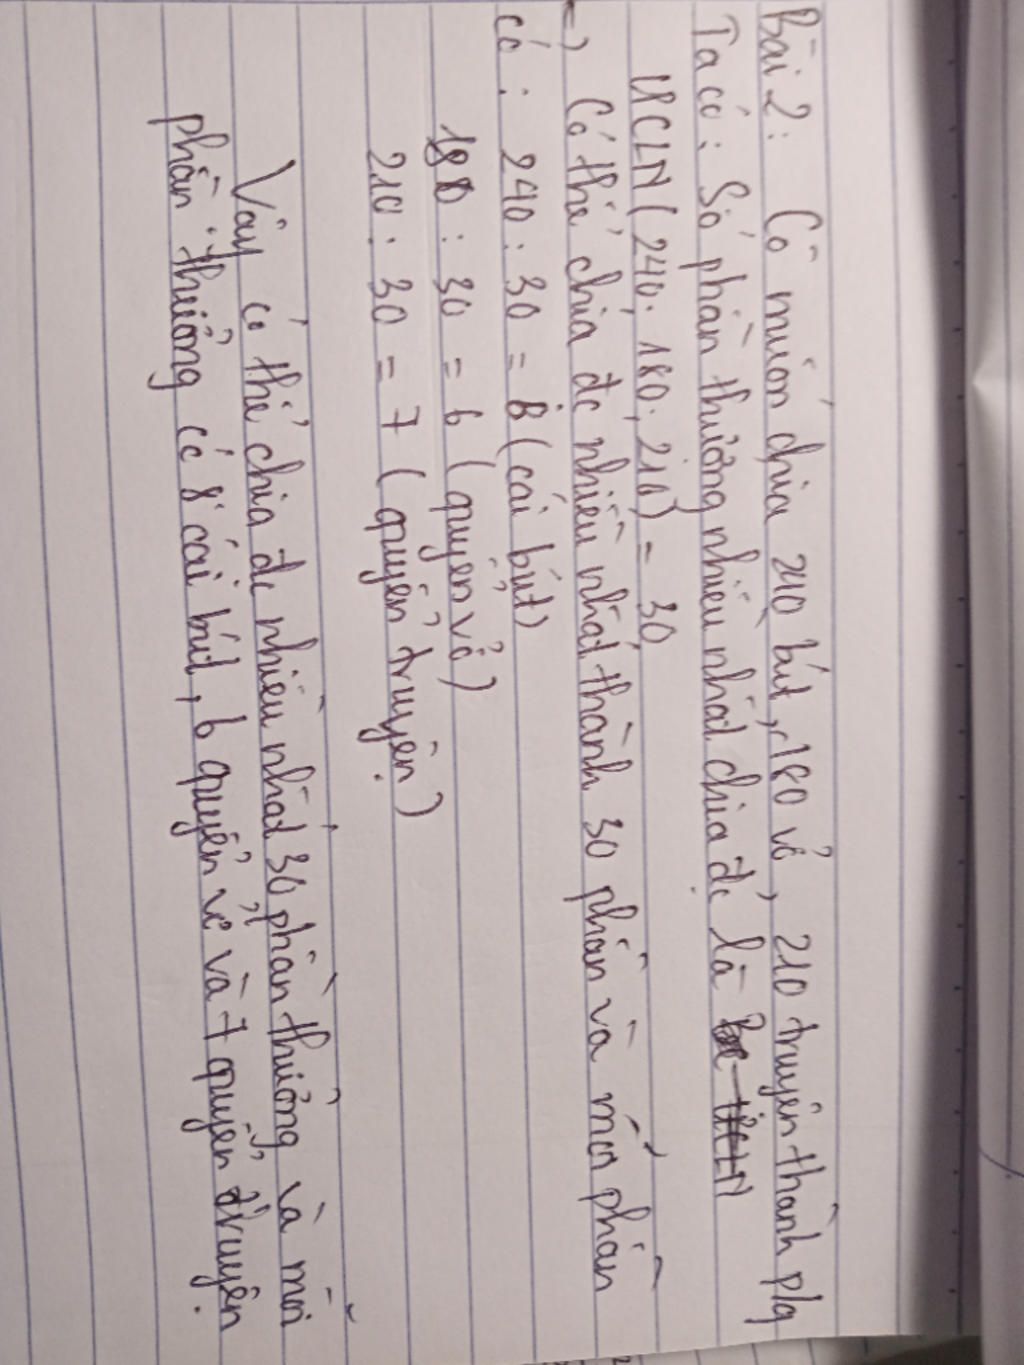 Bài 2: Cô muốn chia 240 bút, 180 vở, 210 truyện thành p/q
Ta có: Số phần thưởng nhiều nhất chia đc là
ƯCLN (240; 180; 210) = 30
=) Có thể chia đc nhiều nhất thành 30 phần và mỗi phần
có: 240 : 30 = 8 (cái bút)
180 : 30 = 6 (quyển vở)
210 : 30 = 7 (quyển truyện)
Vậy có thể chia đc nhiều nhất 30 phần thưởng và mỗi
phần thưởng có 8 cái bút, 6 quyển vở và 7 quyển truyện.